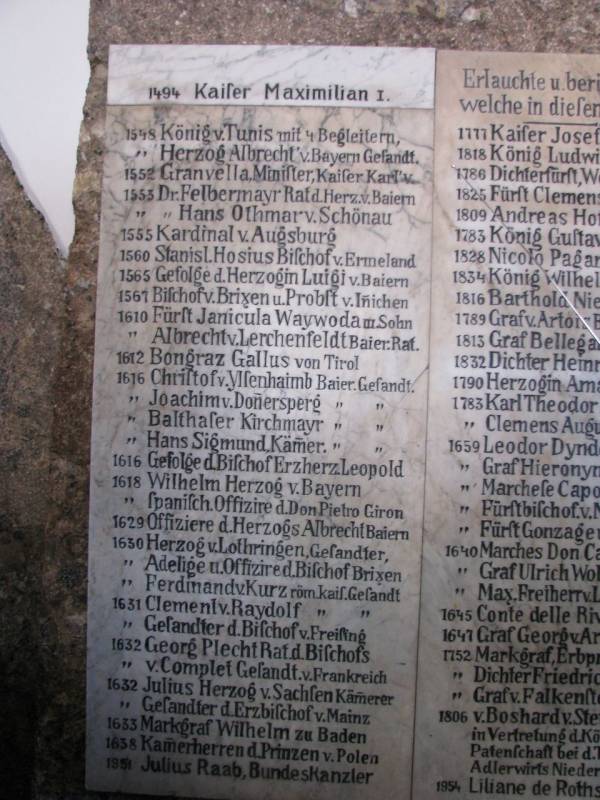 1494 Kaiſer Maximilian I.
1548 König v. Tunis mit 4 Begleitern,
" Herzog Albrecht v. Bayern Geſandt.
1552 Granvella, Miniſter, Kaiſer Karl v.
1553 Dr. Felbermayr Rat d. Herz. v. Baiern
" " Hans Othmar v. Schönau
1555 Kardinal v. Augsburg
1560 Stanisl. Hosius Biſchof v. Ermeland
1565 Gefolge d. Herzogin Luigi v. Baiern
1567 Biſchof v. Brixen u. Probſt v. Iñichen
1610 Fürſt Janicula Waywoda m. Sohn
" Albrecht v. Lerchenfeldt Baier. Rat.
1612 Bongraz Gallus von Tirol
1616 Chriſtof v. Yſſenhaimb Baier. Geſandt.
" Joachim v. Doñersperg " "
" Balthaſer Kirchmayr " "
" Hans Sigmund, Kam̃er. " "
1616 Gefolge d. Biſchof Erzherz. Leopold
1618 Wilhelm Herzog v. Bayern
" ſpaniſch. Offizire d. Don Pietro Giron
1629 Offiziere d. Herzogs Albrecht Baiern
1630 Herzog v. Lothringen, Geſandter,
" Adelige u. Offizire d. Biſchof Brixen
" Ferdinand v. Kurz röm. kaiſ. Geſandt
1631 Clement v. Raydolf " "
" Geſandter d. Biſchof v. Freiſing
1632 Georg Plecht Rat d. Biſchofs
" v. Complet Geſandt. v. Frankreich
1632 Julius Herzog v. Sachſen Kam̃erer
" Geſandter d. Erzbiſchof v. Mainz
1633 Markgraf Wilhelm zu Baden
1638 Kam̃erherren d. Prinzen v. Polen
1951 Julius Raab, Bundeskanzler
Erlauchte u. beri
welche in dieſen
1777 Kaiſer Joſef
1818 König Ludwi
1786 Dichterfürſt, Wo
1825 Fürſt Clemens
1809 Andreas Hof
1783 König Guſtav
1828 Nicolo Pagan
1834 König Wilhel
1816 Barthold Nie
1789 Graf v. Artor
1813 Graf Bellega
1832 Dichter Heinr
1790 Herzogin Ama
1783 Karl Theodor
" Clemens Augu
1659 Leodor Dynd
" Graf Hieronym
" Marcheſe Capo
" Fürſtbiſchof v.
" Fürſt Gonzage
1640 Marches Don Ca
" Graf Ulrich Wol
" Max. Freiherr v. L
1645 Conte delle Riv
1647 Graf Georg v. Ar
1752 Markgraf, Erbpr
" Dichter Friedric
" Graf v. Falkenſt
1806 v. Boshard v. Ste
in Vertretung d. Kö
Patenſchaft bei d. T
Adlerwirts Nieder
1954 Liliane de Roths